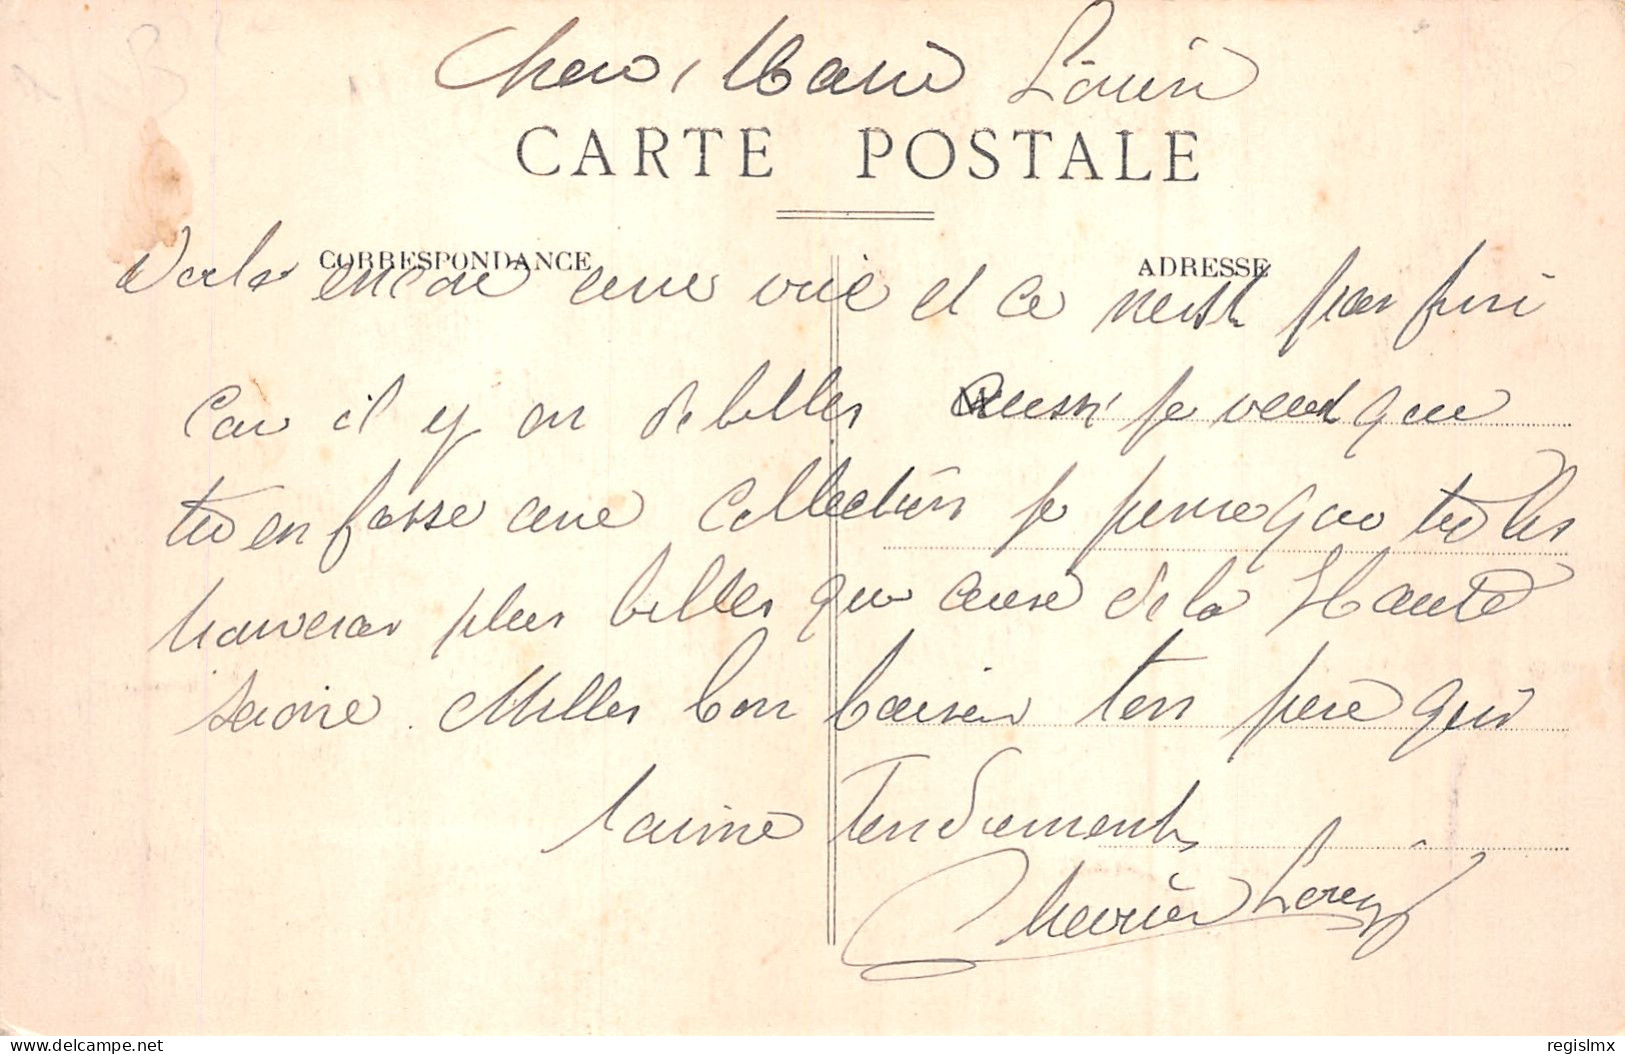 Cher, Marie Louise
CARTE POSTALE
CORRESPONDANCE
ADRESSE
Voila encore une vue et ce nest pas fini
Car il y on de belles aussi je veut que
tu en fasse une collection je pense que tu les
trouveras plus belles que ceuse de la Haute
savoie. Milles bon baiser ton père qui
taime Tendrement
regislmx